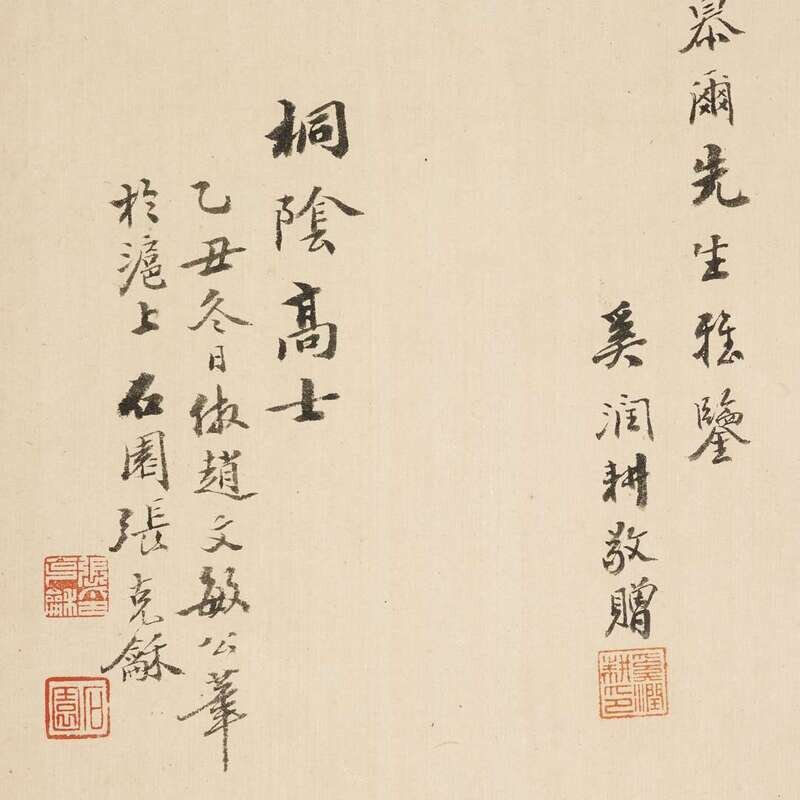 慕爾先生雅鑒
奚润耕敬贈
奚潤耕印
桐陰高士
乙丑冬日倣趙文敏公筆
於滬上石園張克龢
張克龢印
石園